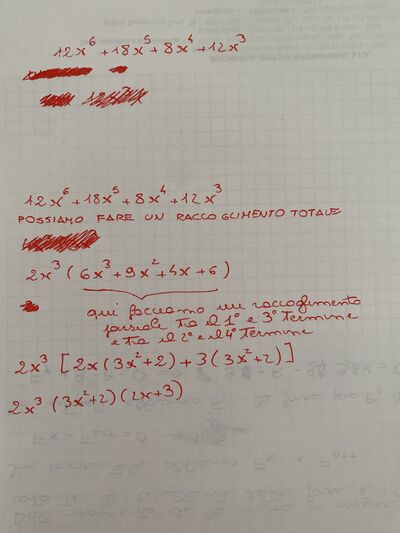 12x⁶ + 18x⁵ + 8x⁴ + 12x³
12x⁶ + 18x⁵ + 8x⁴ + 12x³
POSSIAMO FARE UN RACCOGLIMENTO TOTALE
2x³ (6x³ + 9x² + 4x + 6)
qui facciamo un raccoglimento
parziale tra il 1° e 3° termine
e tra il 2° e il 4° termine
2x³ [2x(3x²+2) + 3(3x²+2)]
2x³ (3x²+2)(2x+3)